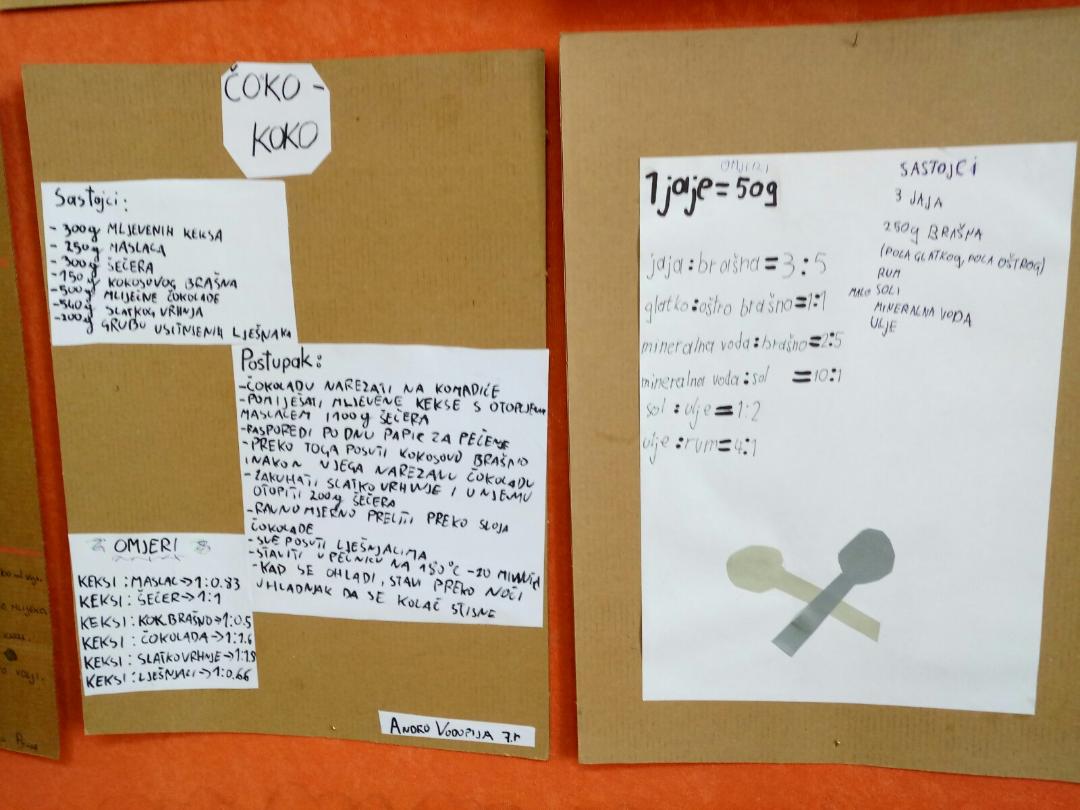 ČOKO -
KOKO
Sastojci:
- 300g MLJEVENIH KEKSA
- 250g MASLACA
- 300g ŠEĆERA
- 150g KOKOSOVOG BRAŠNA
- 500g MLIJEČNE ČOKOLADE
- 540g SLATKOG VRHNJA
- 200g GRUBO USITNJENIH LJEŠNAKA
Postupak:
- ČOKOLADU NAREZATI NA KOMADIĆE
- POMIJEŠATI MLJEVENE KEKSE S OTOPLJENIM
MASLACEM I 100g ŠEĆERA
- RASPOREDI PO DNU PAPIR ZA PEČENJE
- PREKO TOGA POSUTI KOKOSOVO BRAŠNO
I NAKON NJEGA NAREZANU ČOKOLADU
- ZAKUHATI SLATKO VRHNJE I U NJEMU
OTOPITI 200g ŠEĆERA
- RAVNOMJERNO PRELITI PREKO SLOJA
ČOKOLADE
- SVE POSUTI LJEŠNJACIMA
- STAVITI U PEĆNICU NA 180°C - 20 MINUTA
- KAD SE OHLADI, STAVI PREKO NOĆI
U HLADNJAK DA SE KOLAČ STISNE
OMJERI
KEKSI : MASLAC → 1:0.83
KEKSI : ŠEĆER → 1:1
KEKSI : KOK.BRAŠNO → 1:0.5
KEKSI : ČOKOLADA → 1:1.6
KEKSI : SLATKO VRHNJE → 1:1.8
KEKSI : LJEŠNJACI → 1:0.66
ANDRO VODOPIJA 7.r
OMJERI
1 jaje = 50g
jaja : brašna = 3:5
glatko : oštro brašno = 1:1
mineralna voda : brašno = 2:5
mineralna voda : sol = 10:1
sol : ulje = 1:2
ulje : rum = 4:1
SASTOJCI
3 JAJA
250g BRAŠNA
(POLA GLATKOG, POLA OŠTROG)
RUM
MALO SOLI
MINERALNA VODA
ULJE